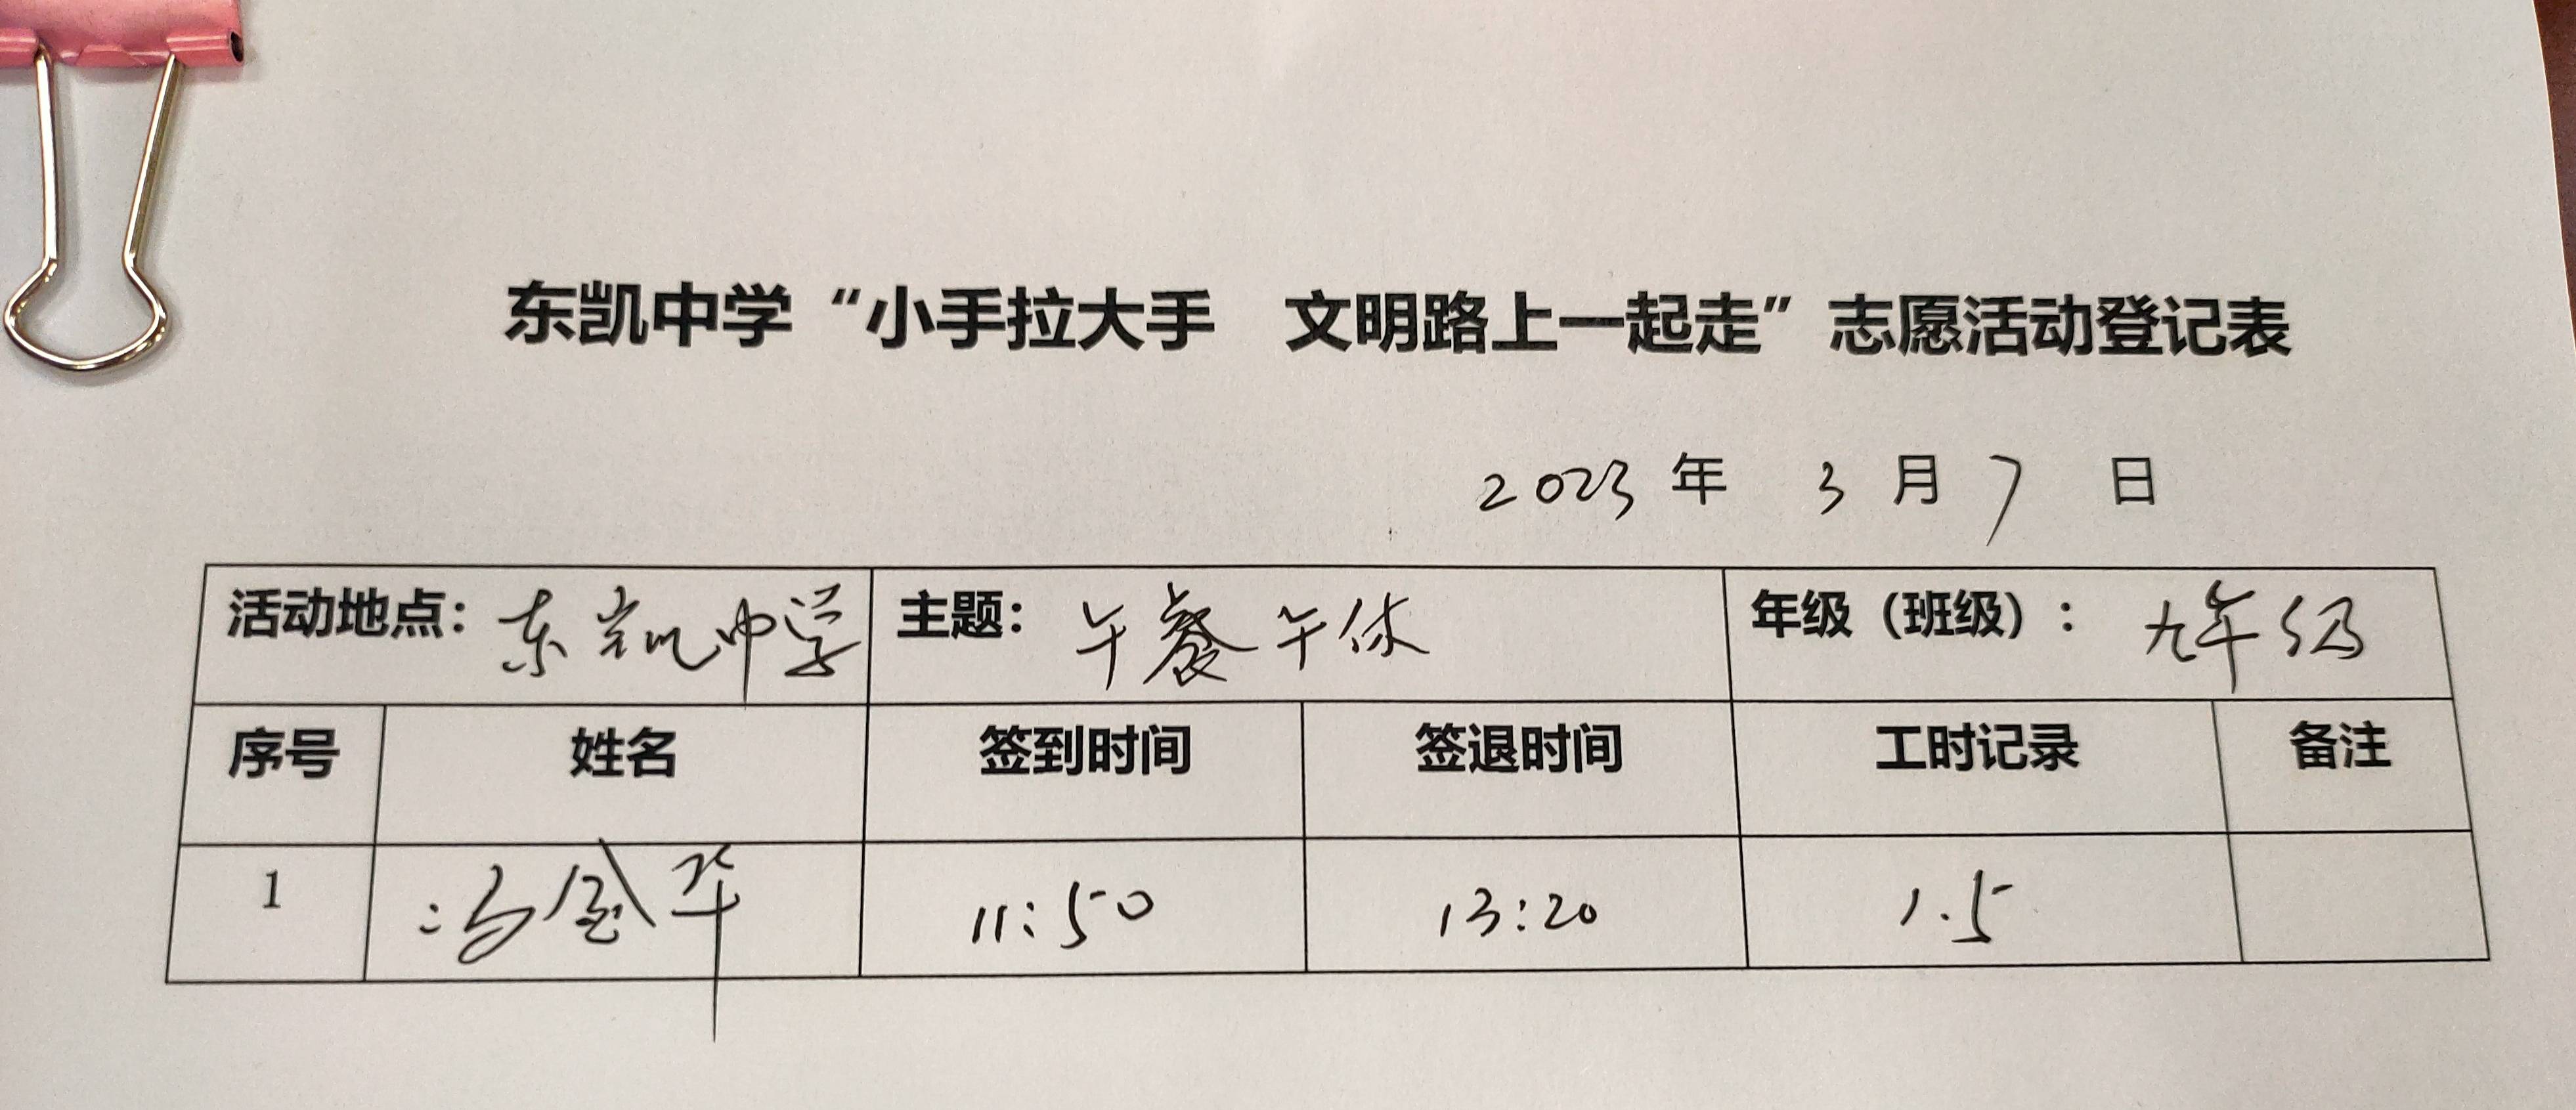 东凯中学“小手拉大手 文明路上一起走”志愿活动登记表
2023 年 3 月 7 日
活动地点：东凯中学 主题：午餐午休 年级（班级）：九年级
序号 姓名 签到时间 签退时间 工时记录 备注
1 冯金华 11:50 13:20 1.5